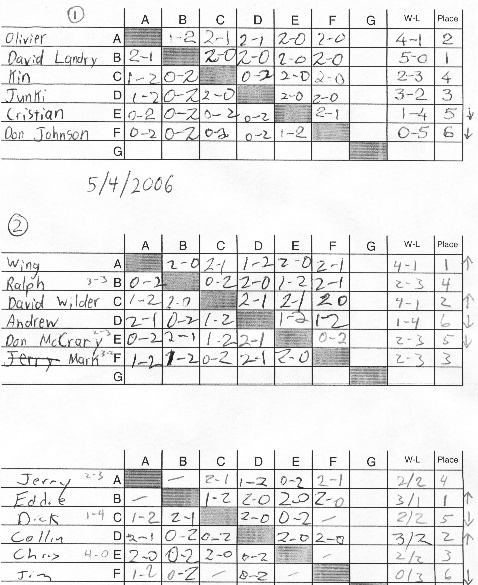 ①
A B C D E F G W-L Place
Olivier A 1-2 2-1 2-1 2-0 2-0 4-1 2
David Landry B 2-1 2-0 2-0 2-0 2-0 5-0 1
Kin C 1-2 0-2 0-2 2-0 2-0 2-3 4
Junki D 1-2 0-2 2-0 2-0 2-0 3-2 3
Cristian E 0-2 0-2 0-2 0-2 2-1 1-4 5 ↓
Don Johnson F 0-2 0-2 0-2 0-2 1-2 0-5 6 ↓
G
5/4/2006
②
A B C D E F G W-L Place
Wing A 2-0 2-1 1-2 2-0 2-1 4-1 1 ↑
Ralph 3-3 B 0-2 0-2 2-0 1-2 2-1 2-3 4
David Wilder C 1-2 2-0 2-1 2-1 2-0 4-1 2 ↑
Andrew D 2-1 0-2 1-2 1-2 1-2 1-4 6 ↓
Don McCrary 2-3 E 0-2 2-1 1-2 2-1 0-2 2-3 5 ↓
Jerry Mark F 1-2 1-2 0-2 2-1 2-0 2-3 3
G
A B C D E F G W-L Place
Jerry 2-3 A - 2-1 1-2 0-2 2-1 2/2 4
Eddie B - 1-2 2-0 2-0 2-0 3/1 1 ↑
Dick 1-4 C 1-2 2-1 2-0 0-2 - 2/2 5 ↓
Collin D 2-1 0-2 0-2 2-0 2-0 3/2 2 ↑
Chris 4-0 E 2-0 0-2 2-0 0-2 - 2/2 3
Jim F 1-2 0-2 - 0-2 - 0/3 6 ↓